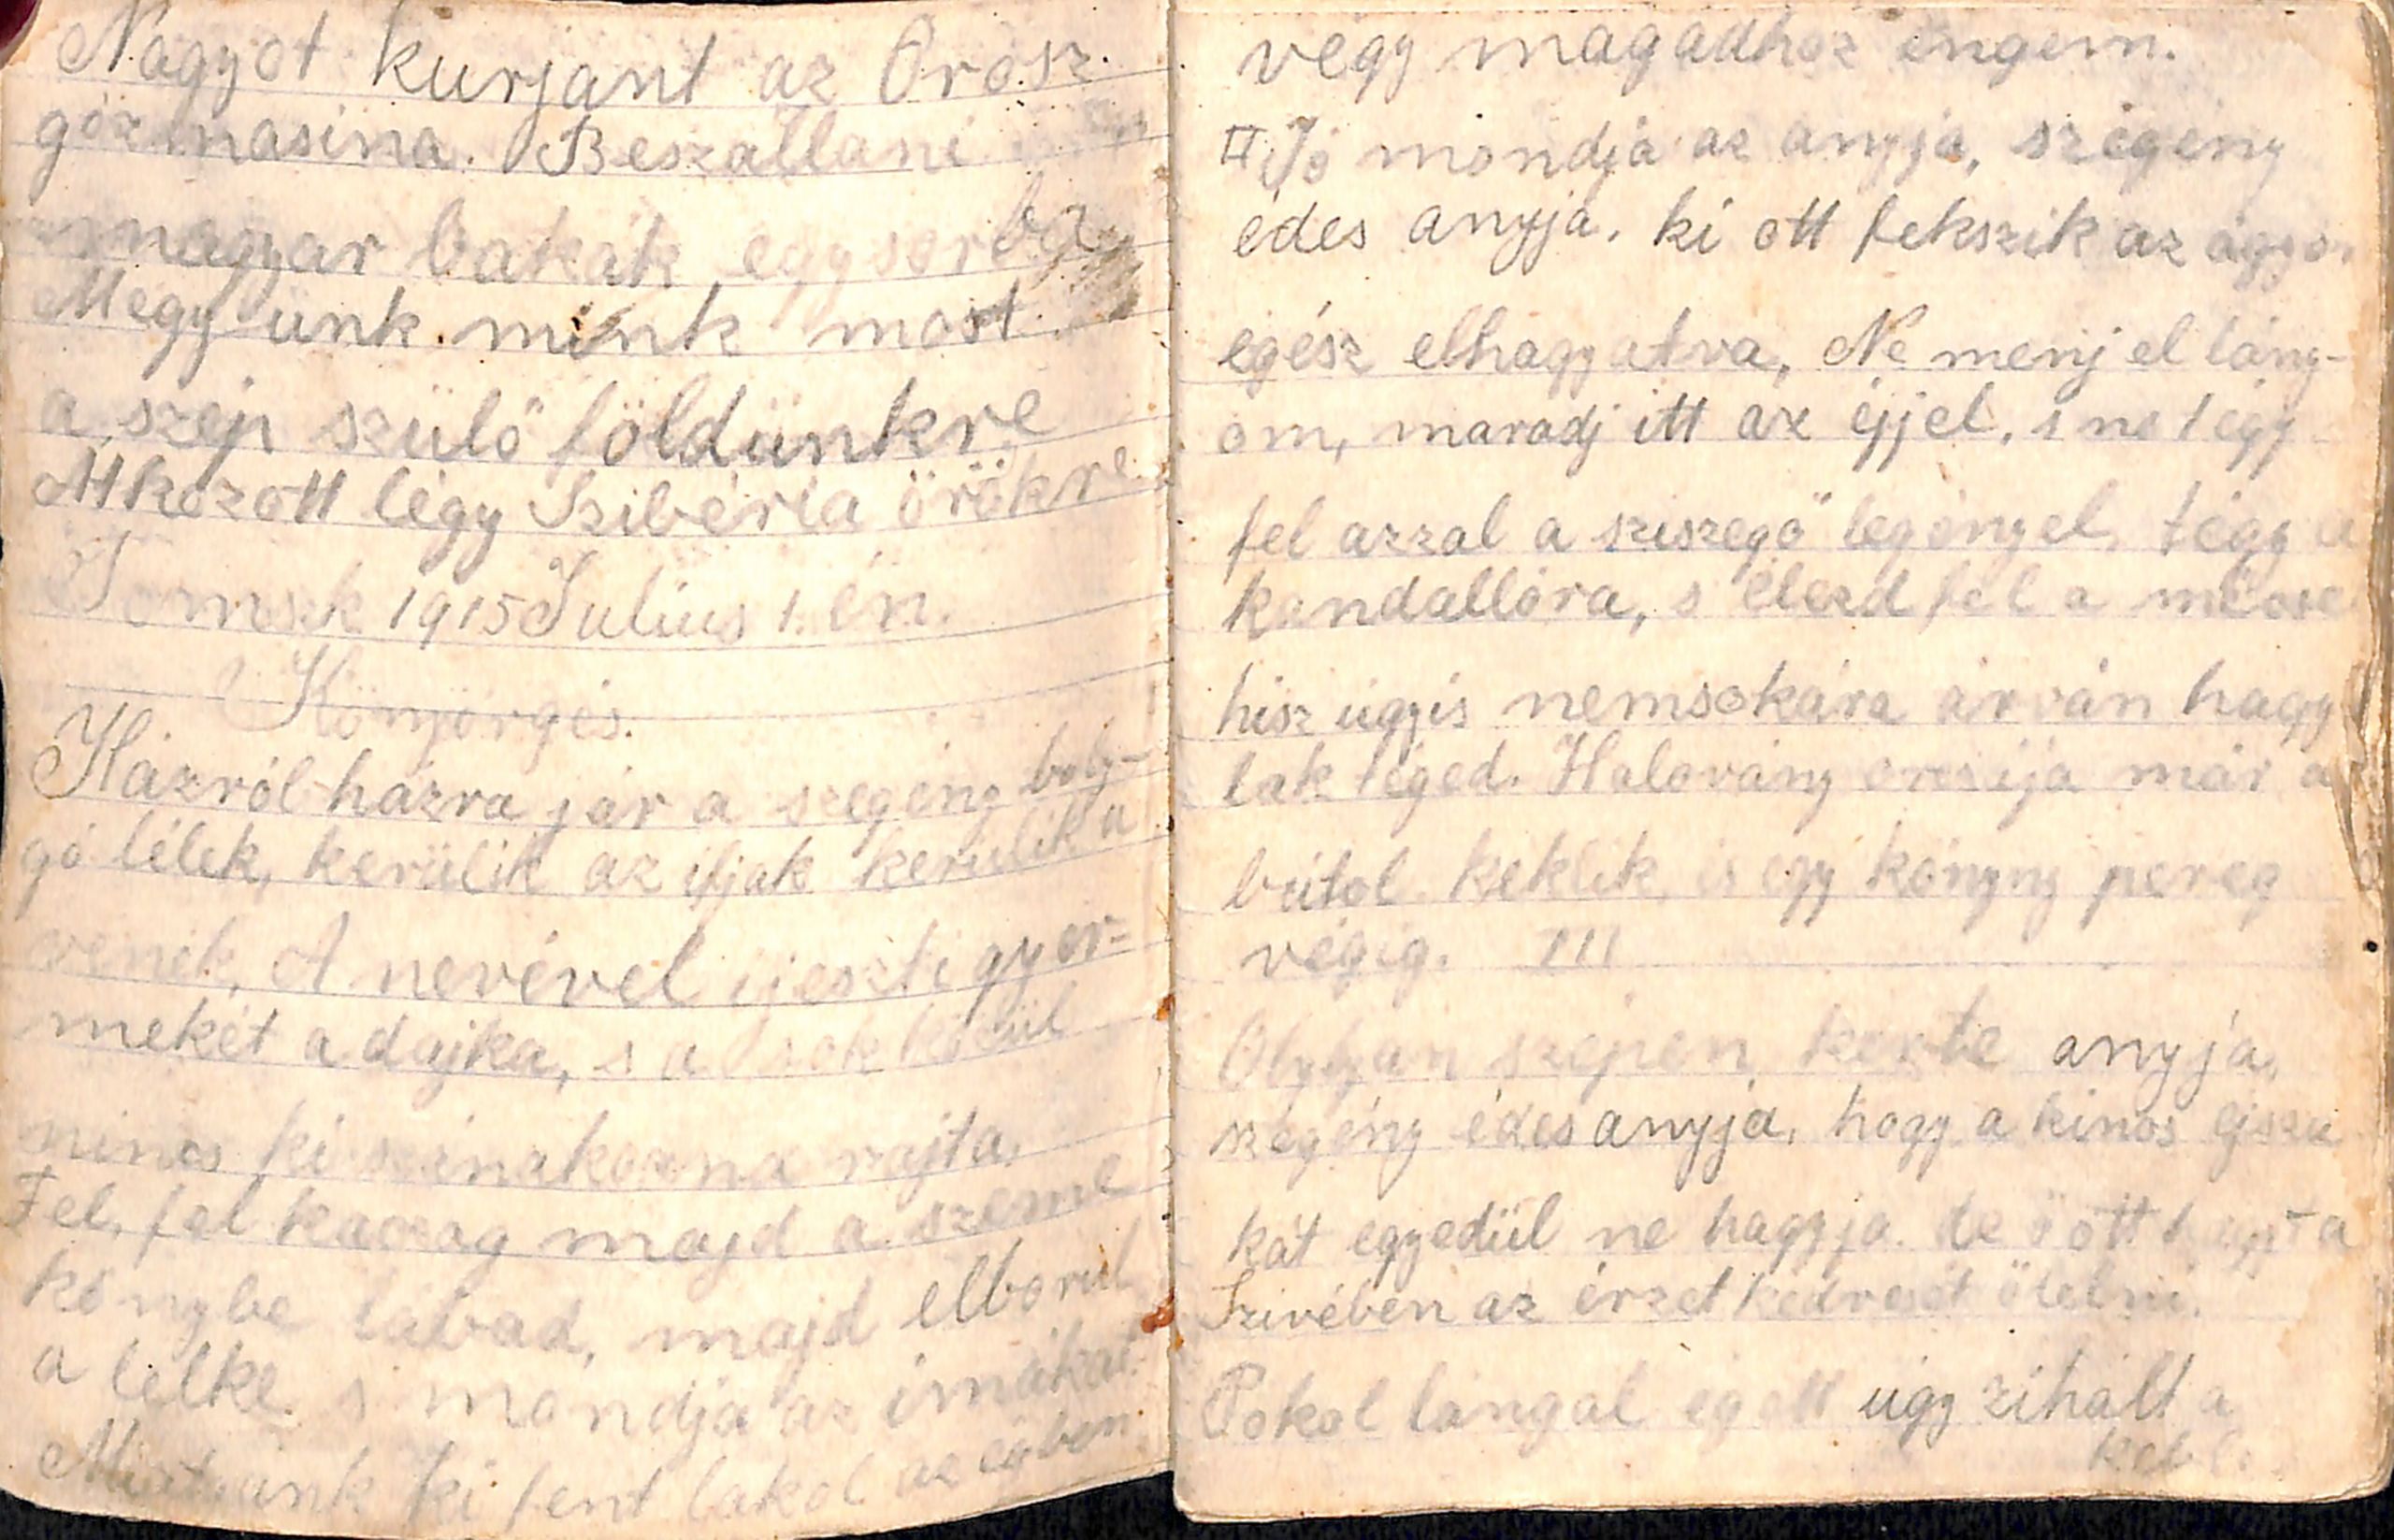 Nagyot kurjant az Orosz
gőzmasina. Beszállani
magyar bakák egysorba
Megyünk mink most
a szép szülő földünkre
Átkozott légy Szibéria örökre
Tomszk 1915 Julius 1. én.
Könyörgés.
Házról házra jár a szegény boly-
gó lélek, kerülik az ifjak kerülik a
vének, A nevével ijeszti gyer=
mekét a dajka, s a sok közül
nincs ki szánakozna rajta,
Fel, fel kacag majd a szeme
könybe lábad, majd elborul
a lelke s mondja az imákat
Miatyánk ki fent lakol az égben
végy magadhoz engem.
II Jó mondja az anyja, szegény
édes anyja, ki ott fekszik az ágyo.
egész elhagyatva, Ne menj el lány-
om, maradj itt az éjjel, s ne légy
fel azzal a sziszegő legényel, tégy a
kandallóra, s éleszd fel a mécse
hisz úgyis nemsokára árván hagy
lak téged. Halovány orcája már a
bútol keklik, is egy könyny pereg
végig. III
Olylyan szépen kérte anyja,
szegény édesanyja, hogy a kinos éjsza
kát egyedül ne hagyja. de ő ott hagyta
Szivében az érzet kedvesét ölelni.
Pokol lángal égett úgy zihált a
kebl.